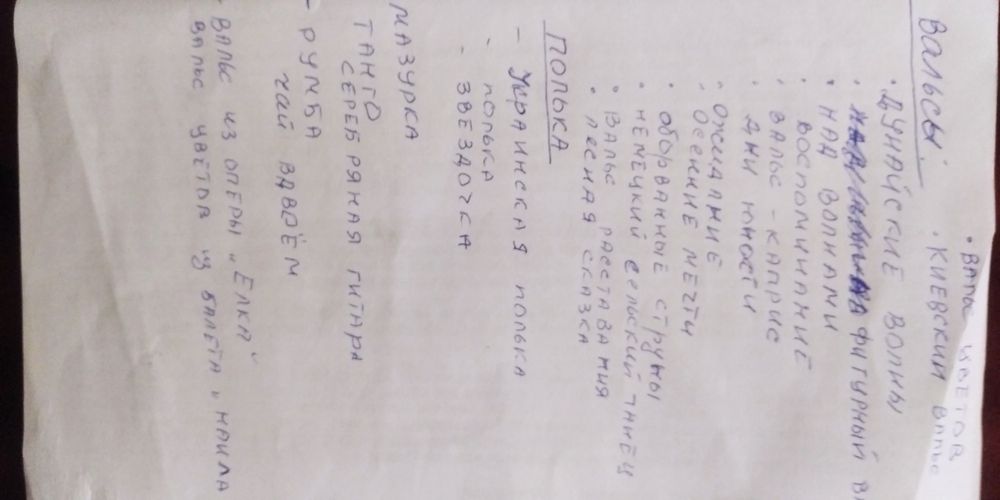 • ВАЛЬС ЦВЕТОВ
ВАЛЬСЫ: • КИЕВСКИЙ ВАЛЬС
• ДУНАЙСКИЕ ВОЛНЫ
• ФИГУРНЫЙ ВА
• НАД ВОЛНАМИ
• ВОСПОМИНАНИЕ
• ВАЛЬС - КАПРИС
• ДНИ ЮНОСТИ
• ОЖИДАНИЕ
• ОСЕННИЕ МЕЧТЫ
• ОБОРВАННЫЕ СТРУНЫ
• НЕМЕЦКИЙ СЕЛЬСКИЙ ТАНЕЦ
• ВАЛЬС РАССТАВАНИЯ
• ЛЕСНАЯ СКАЗКА
ПОЛЬКА
- УКРАИНСКАЯ ПОЛЬКА
- ПОЛЬКА
- ЗВЕЗДОЧКА
МАЗУРКА
ТАНГО
СЕРЕБРЯНАЯ ГИТАРА
- РУМБА
ЧАЙ ВДВОЁМ
- ВАЛЬС ИЗ ОПЕРЫ „ЕЛКА"
ВАЛЬС ЦВЕТОВ ИЗ БАЛЕТА „